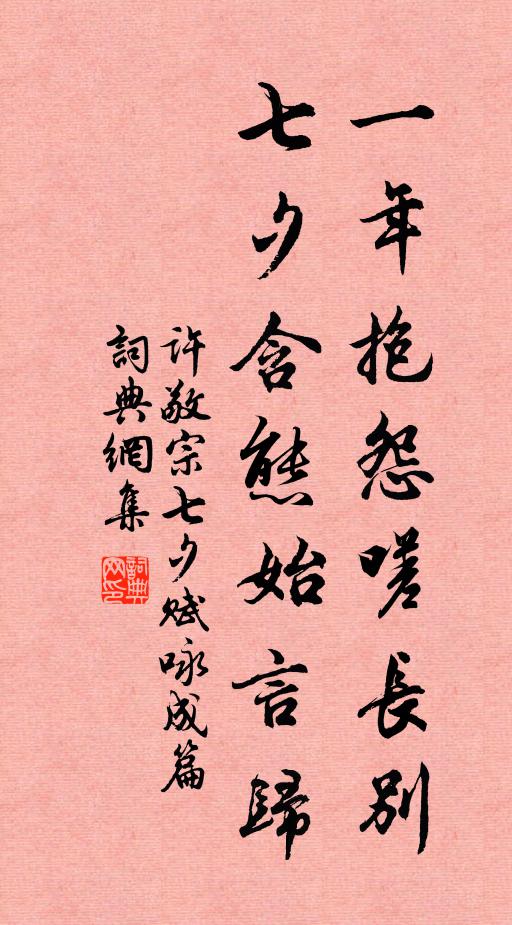 一年抱怨嗟長別
七夕含態始言歸
許敬宗七夕賦咏成篇
詞典網集
詞典网印